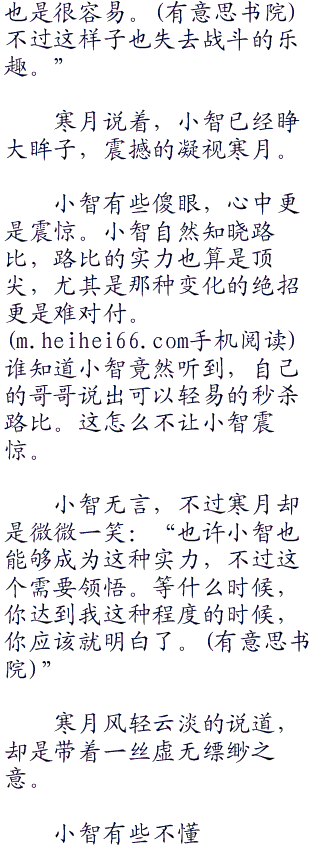 也是很容易。(有意思书院)
不过这样子也失去战斗的乐
趣。”
寒月说着，小智已经睁
大眸子，震撼的凝视寒月。
小智有些傻眼，心中更
是震惊。小智自然知晓路
比，路比的实力也算是顶
尖，尤其是那种变化的绝招
更是难对付。
(m.heihei66.com手机阅读)
谁知道小智竟然听到，自己
的哥哥说出可以轻易的秒杀
路比。这怎么不让小智震
惊。
小智无言，不过寒月却
是微微一笑：“也许小智也
能够成为这种实力，不过这
个需要领悟。等什么时候，
你达到我这种程度的时候，
你应该就明白了。(有意思书
院)”
寒月风轻云淡的说道，
却是带着一丝虚无缥缈之
意。
小智有些不懂